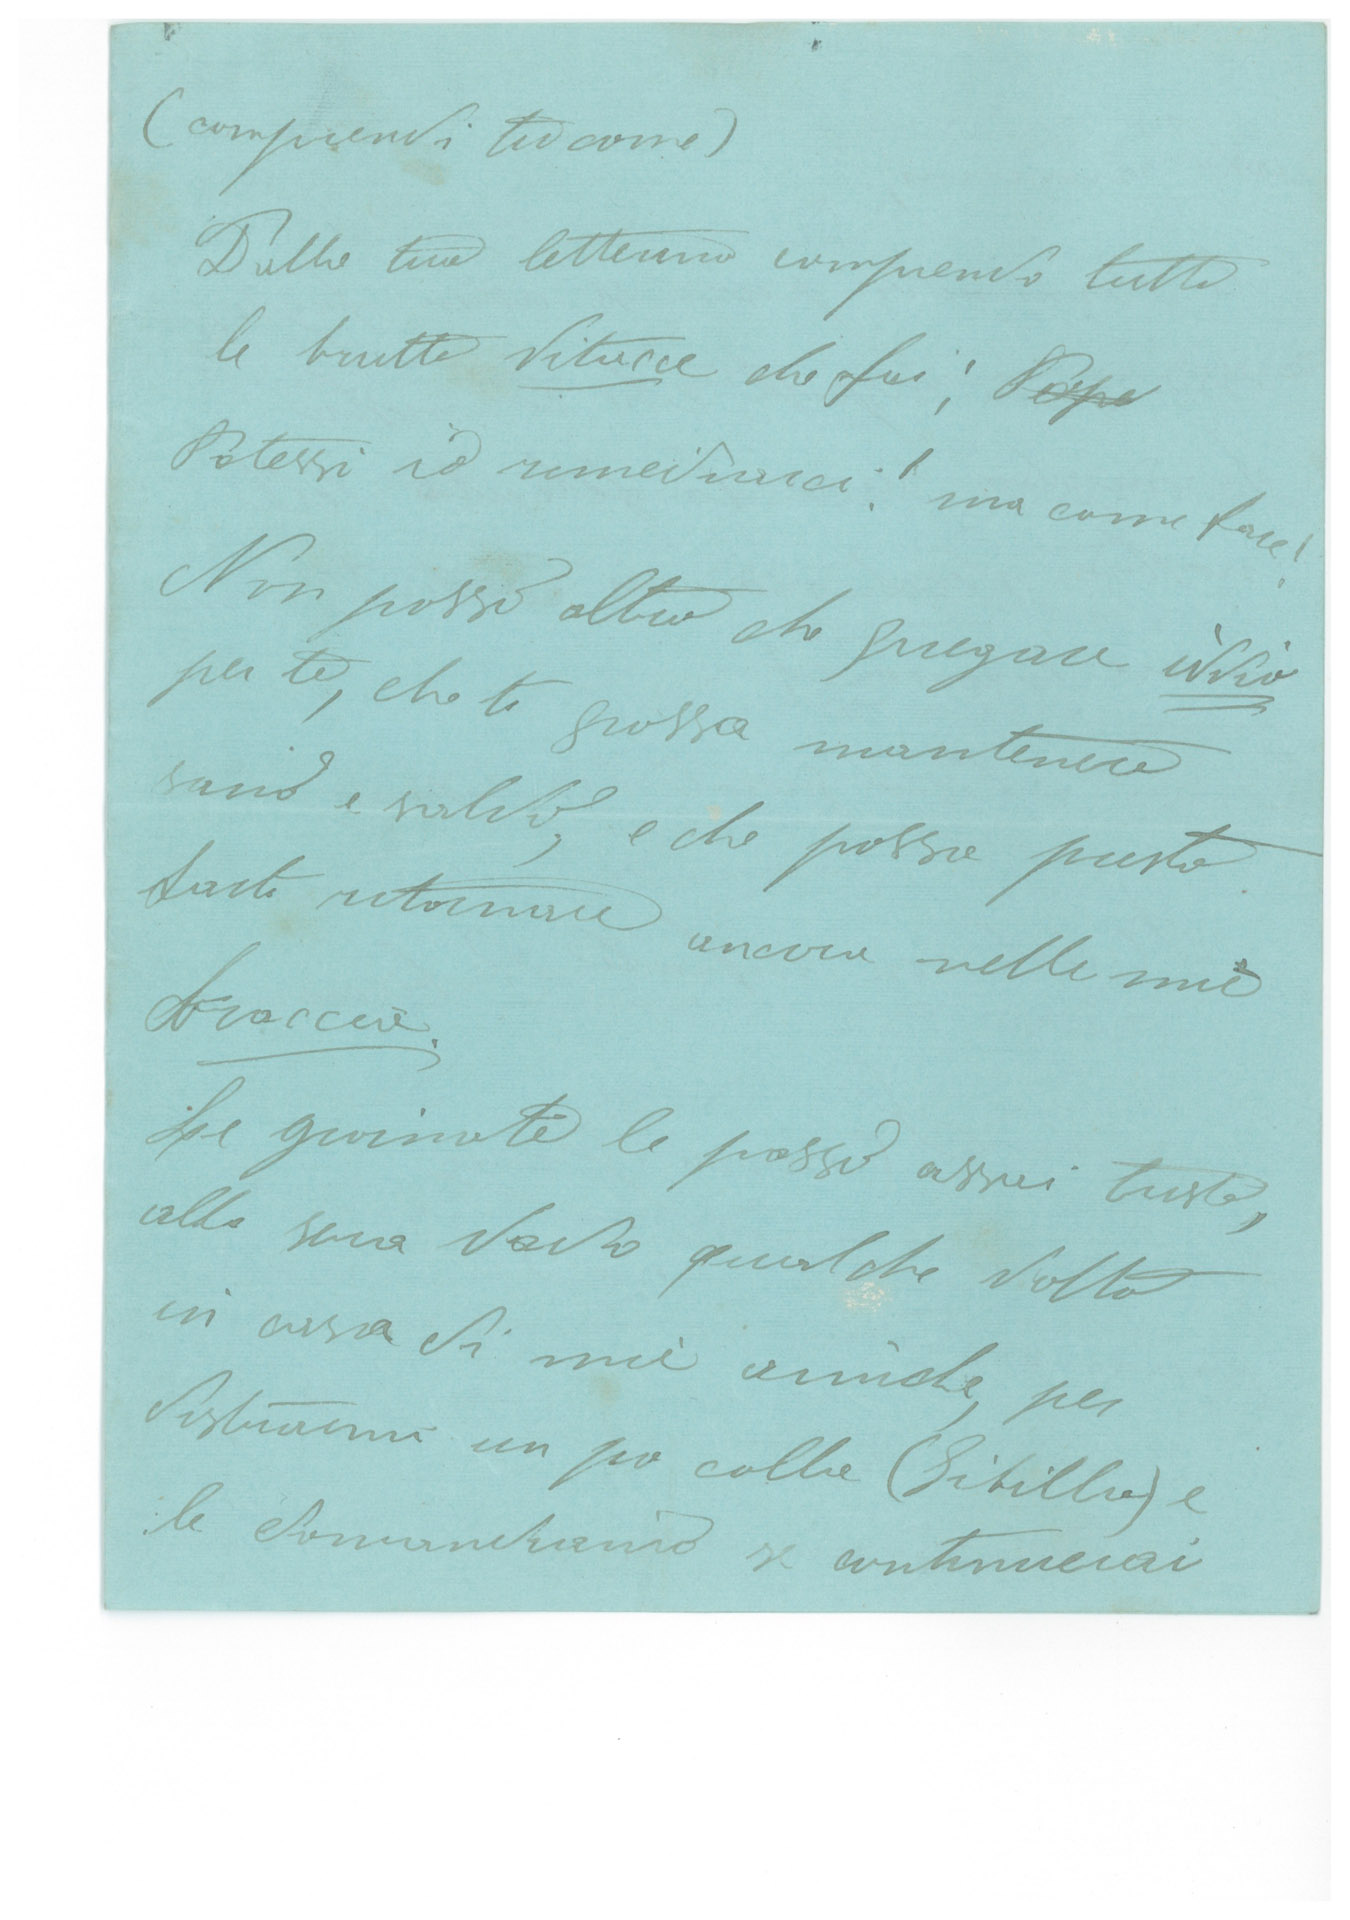 (comprendi tu come)
Dalla tua letterina comprendo tutta
la brutta vitacce che fai! Pope
Potessi io rimediarci! ma come fare!
Non posso altro che pregare iddio
per te, che ti possa mantenere
sano e saldo, e che possa presto
farti ritornare ancora nelle mie
braccia.
Le giornate le passo assai triste,
alla sera vado qualche volta
in casa di mie amiche, per
distrarmi un po colla (Sibilla) e
le domandiamo se continuerai